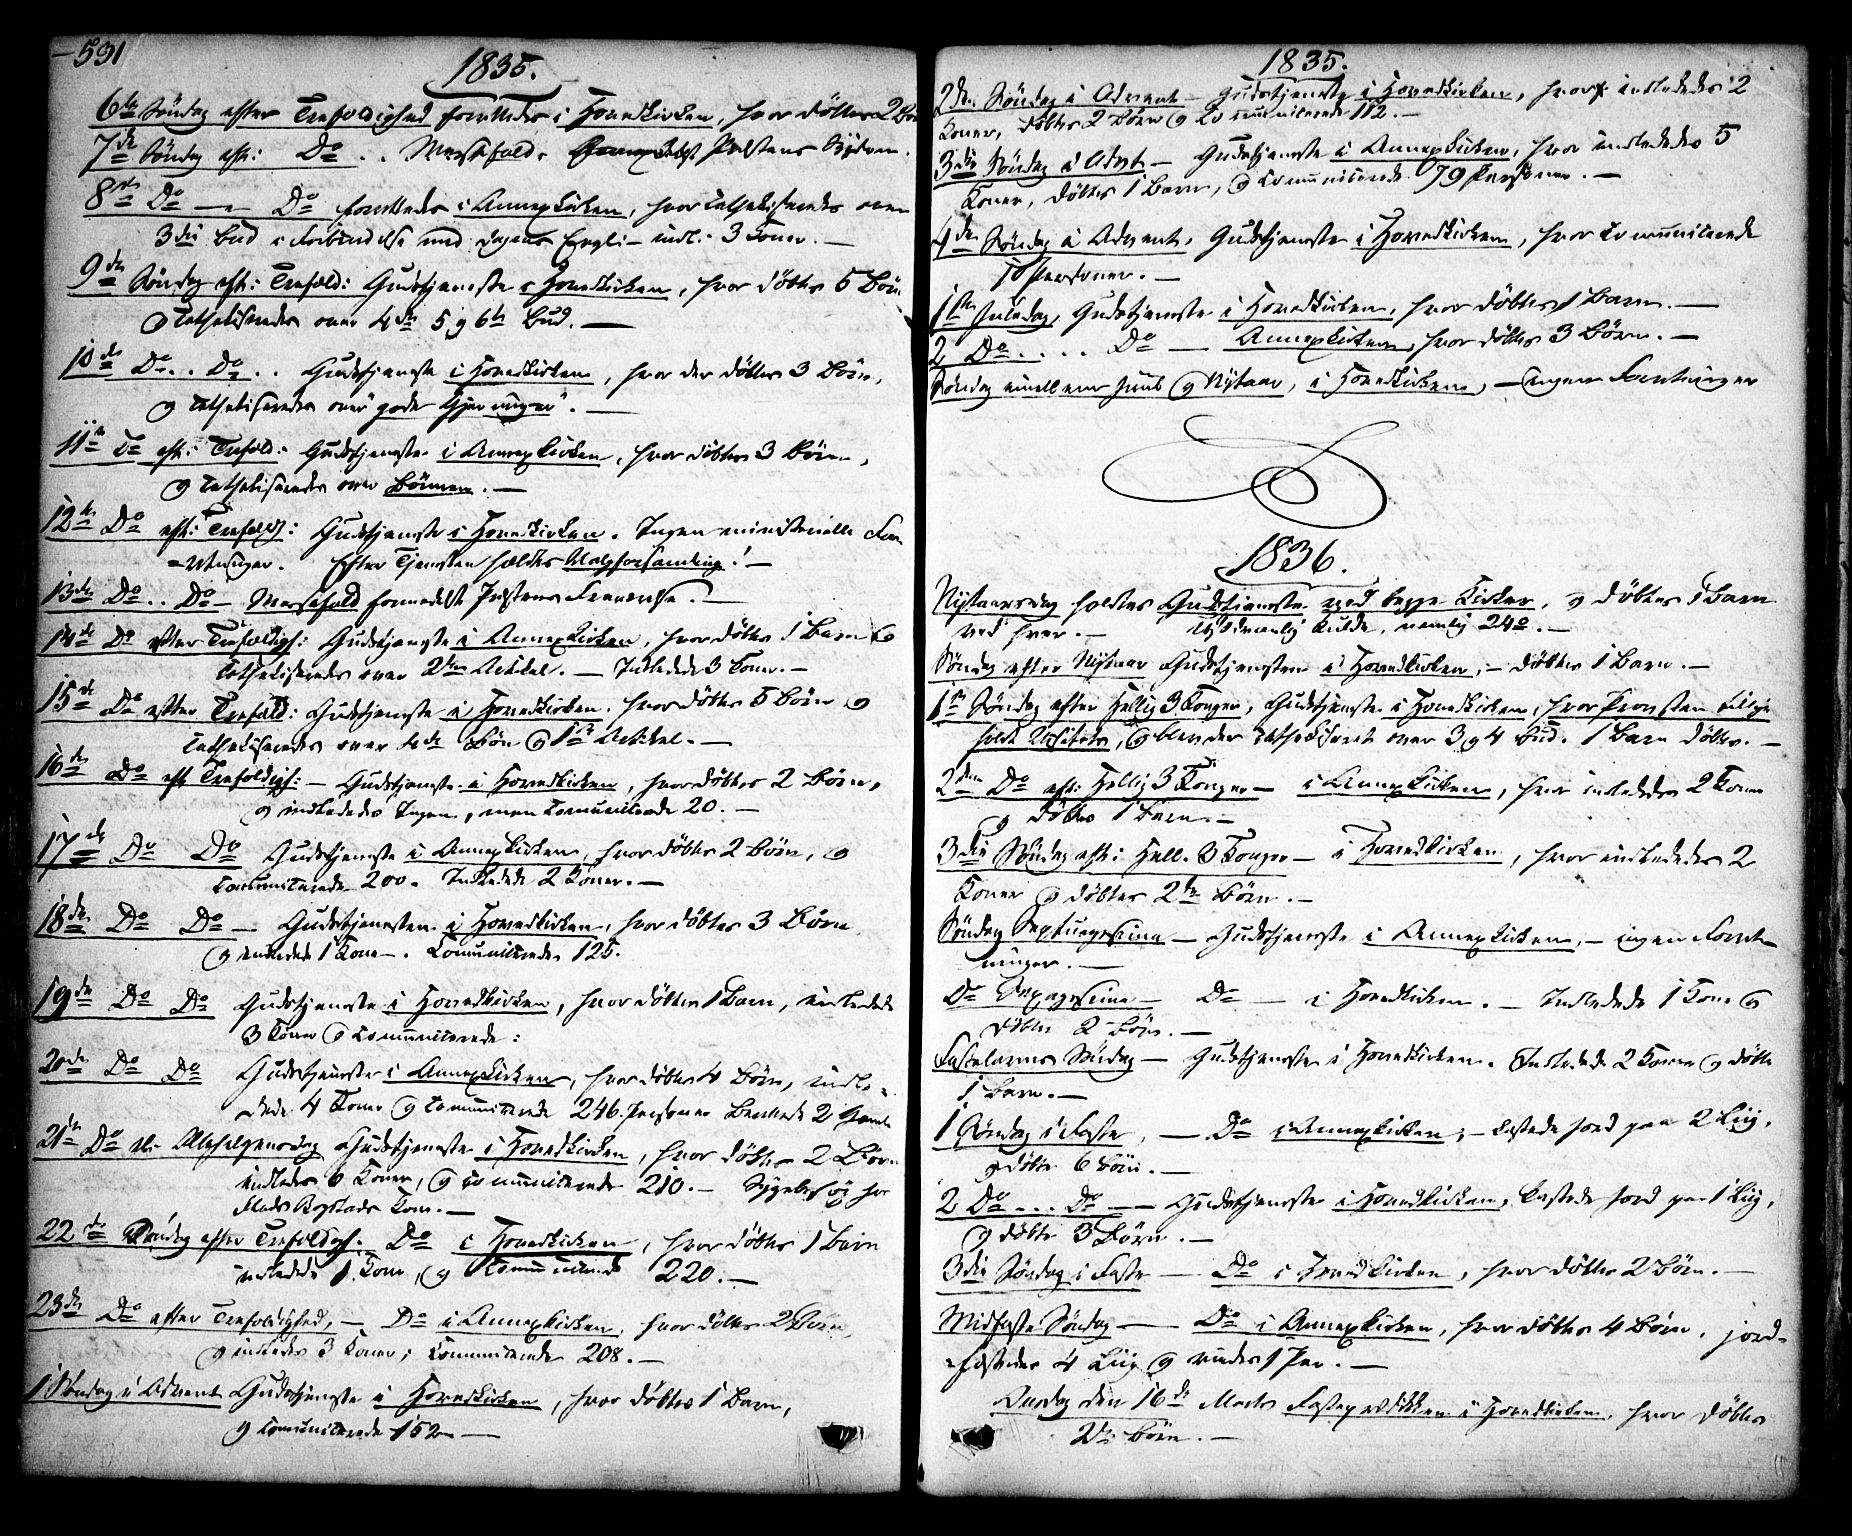 531
1835.
6te Söndag efter Trefoldighed forrettedes i Hovedkirken, hvor döbtes 2 Börn
7de Söndag eft: Do . . Messefald, Præstens Sÿgdom.
8de Do — Do forrettedes i Annexkirken, hvor Catheliseredes over
3die Bud i Forbindelse med Dagens Evgli— indl: 3 Koner. —
9de Söndag eft: Trefold: Gudstjeneste i Hovedkirken, hvor döbtes 5 Börn
og Catheliseredes over 4de 5 og 6te Bud. —
10de Do . . Do . . Gudstjeneste i Hovedkirken, hvor der döbtes 3 Börn,
og Catheliseredes over "gode Gjerninger". —
11te Do eft: Trefold: Gudstjeneste i Annexkirken, hvor döbtes 3 Börn,
og Catheliseredes over Bönnen. —
12te Do eft: Trefoldg: Gudstjeneste i Hovedkirken. Ingen ministerielle For=
=retninger. Efter Tjenesten holdtes Valgforsamling! —
13de Do . . Do — Messefald formedelst Præstens Fraværelse. —
14de Do efter Trefoldigh: Gudstjeneste i Annexkirken, hvor döbtes 1 Barn &
Catheliseredes over 2den Artikel. — Indledede 3 Koner. —
15de Do efter Trefold: Gudstjeneste i Hovedkirken. hvor döbtes 5 Börn og
Catheliseredes over Bön og 1ste Artikel. —
16de Do eft Trefoldigh: — Gudstjeneste i Hovedkirken, hvor döbtes 2 Börn,
og indledede Ingen, men Comuniterede 20. —
17de Do Do Gudstjeneste i Annexkirken, hvor döbtes 2 Börn, og
Comuniterede 200. Indledede 2 Koner. —
18de Do Do — Gudstjenesten i Hovedkirken, hvor döbtes 3 Börn
og indledede 1 Kone —. Comuniterede 125.
19de Do Do Gudstjeneste i Hovedkirken, hvor döbtes 1 Barn, indledede
3 Koner og Communiterede:
20de Do Do Gudstjeneste i Annexkirken, hvor döbtes 4 Börn, indle=
dede 4 Koner og Comuniterede 246 Personer 2
21de Do el: Allehelgensdag Gudstjeneste i Hovedkirken, hvor döbtes 2 Börn
indledes 6 Koner, og Communiterede 210. — Sÿgebesög hos
Mads Kone. —
22de Söndag efter Trefoldigh: Do i Hovedkirken, hvor döbtes 1 Barn
indledede 1 Kone, og Communiterede 220. —
23de Do efter Trefoldighed, — Do i Annexkirken, hvor döbtes 2 Börn,
og indledes 3 Koner; Communiterede 208. —
1 Söndag i Advent Gudstjeneste i Hovedkirken, hvor döbtes 1 Barn,
og Comuniterede 152 —
1835.
2den Söndag i Advent — Gudstjeneste i Hovedkirken, hvor indlededes 2
Koner, döbtes 2 Börn og Communiterede 112. —
3die Söndag i Advt — Gudstjeneste i Annexkirken, hvor indlededes 5
Koner, döbtes 1 Barn, og Communiterede 79 Personer. —
4de Söndag i Advent, Gudstjeneste i Hovedkirken, hvor Communiterede
10 Personer. —
1ste Juledag, Gudstjeneste i Hovedkirken, hvor döbtes 1 Barn. —
2 Do . . . . Do — Annexkirken, hvor döbtes 3 Börn. —
Söndag imellem Juul og Nÿtaar, i Hovedkirken, — ingen Forretninger
1836.
Nÿtaarsdag holdtes Gudstjeneste ved begge Kirker, og döbtes 1 Barn
ved hver. — Kulde, nemlig 24o. —
Söndag efter Nÿtaar Gudstjenesten i Hovedkirken, — döbtes 1 Barn. —
1ste Söndag efter Hellig 3 Konger, Gudstjeneste i Hovedkirken, hvor Provsten tillige
holdt Visitats, og blev der Catheliseret over 3 og 4 Bud. 1 Barn döbtes. —
2den Do eft: Hellig 3 Konger — i Annexkirken, hvor indlededes 2 Koner
og döbtes 1 Barn. —
3die Söndag eft: Hell. 3 Konger — i Hovedkirken, hvor indlededes 2
Koner og döbtes 2de Börn. —
Söndag Septuagesima — Gudstjeneste i Annexkirken, — ingen Forret=
ninger. —
Do Sexagesima — Do — i Hovedkirken. — Indledede 1 Kone og
döbte 2 Börn. —
Fastelavns Söndag — Gudstjeneste i Hovedkirken. Indledede 2 Koner og döbte
1 Barn. —
1 Söndag i Faste, — Do i Annexkirken; — kastede Jord paa 2 Liig,
og döbte 6 Börn. —
2 Do . . . Do — Gudstjeneste i Hovedkirken, kastede Jord paa 1 Liig,
og döbte 3 Börn. —
3die Söndag i Faste — Do i Hovedkirken, hvor döbtes 2 Börn. —
Midfaste Söndag — Do i Annexkirken, hvor döbtes 4 Börn, jord=
fæstedes 4 Liig og viedes 1 Par. —
Onsdag den 16de Marts Fasteprædikken i Hovedkirken, hvor döbtes
2de Börn. —